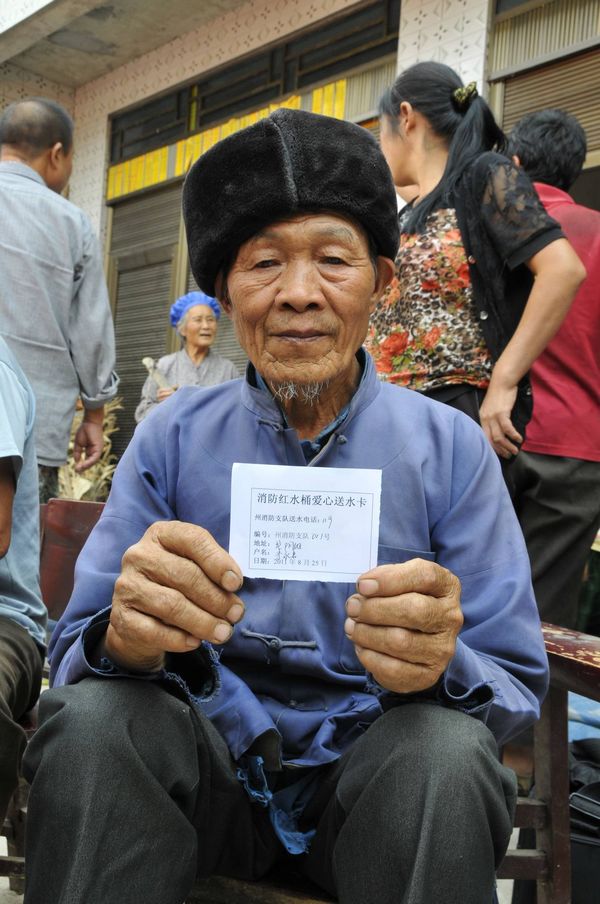 消防红水桶爱心送水卡
州消防支队送水电话：119
编号：州消防支队 01号
地址：
户名：
日期：2011年8月25日